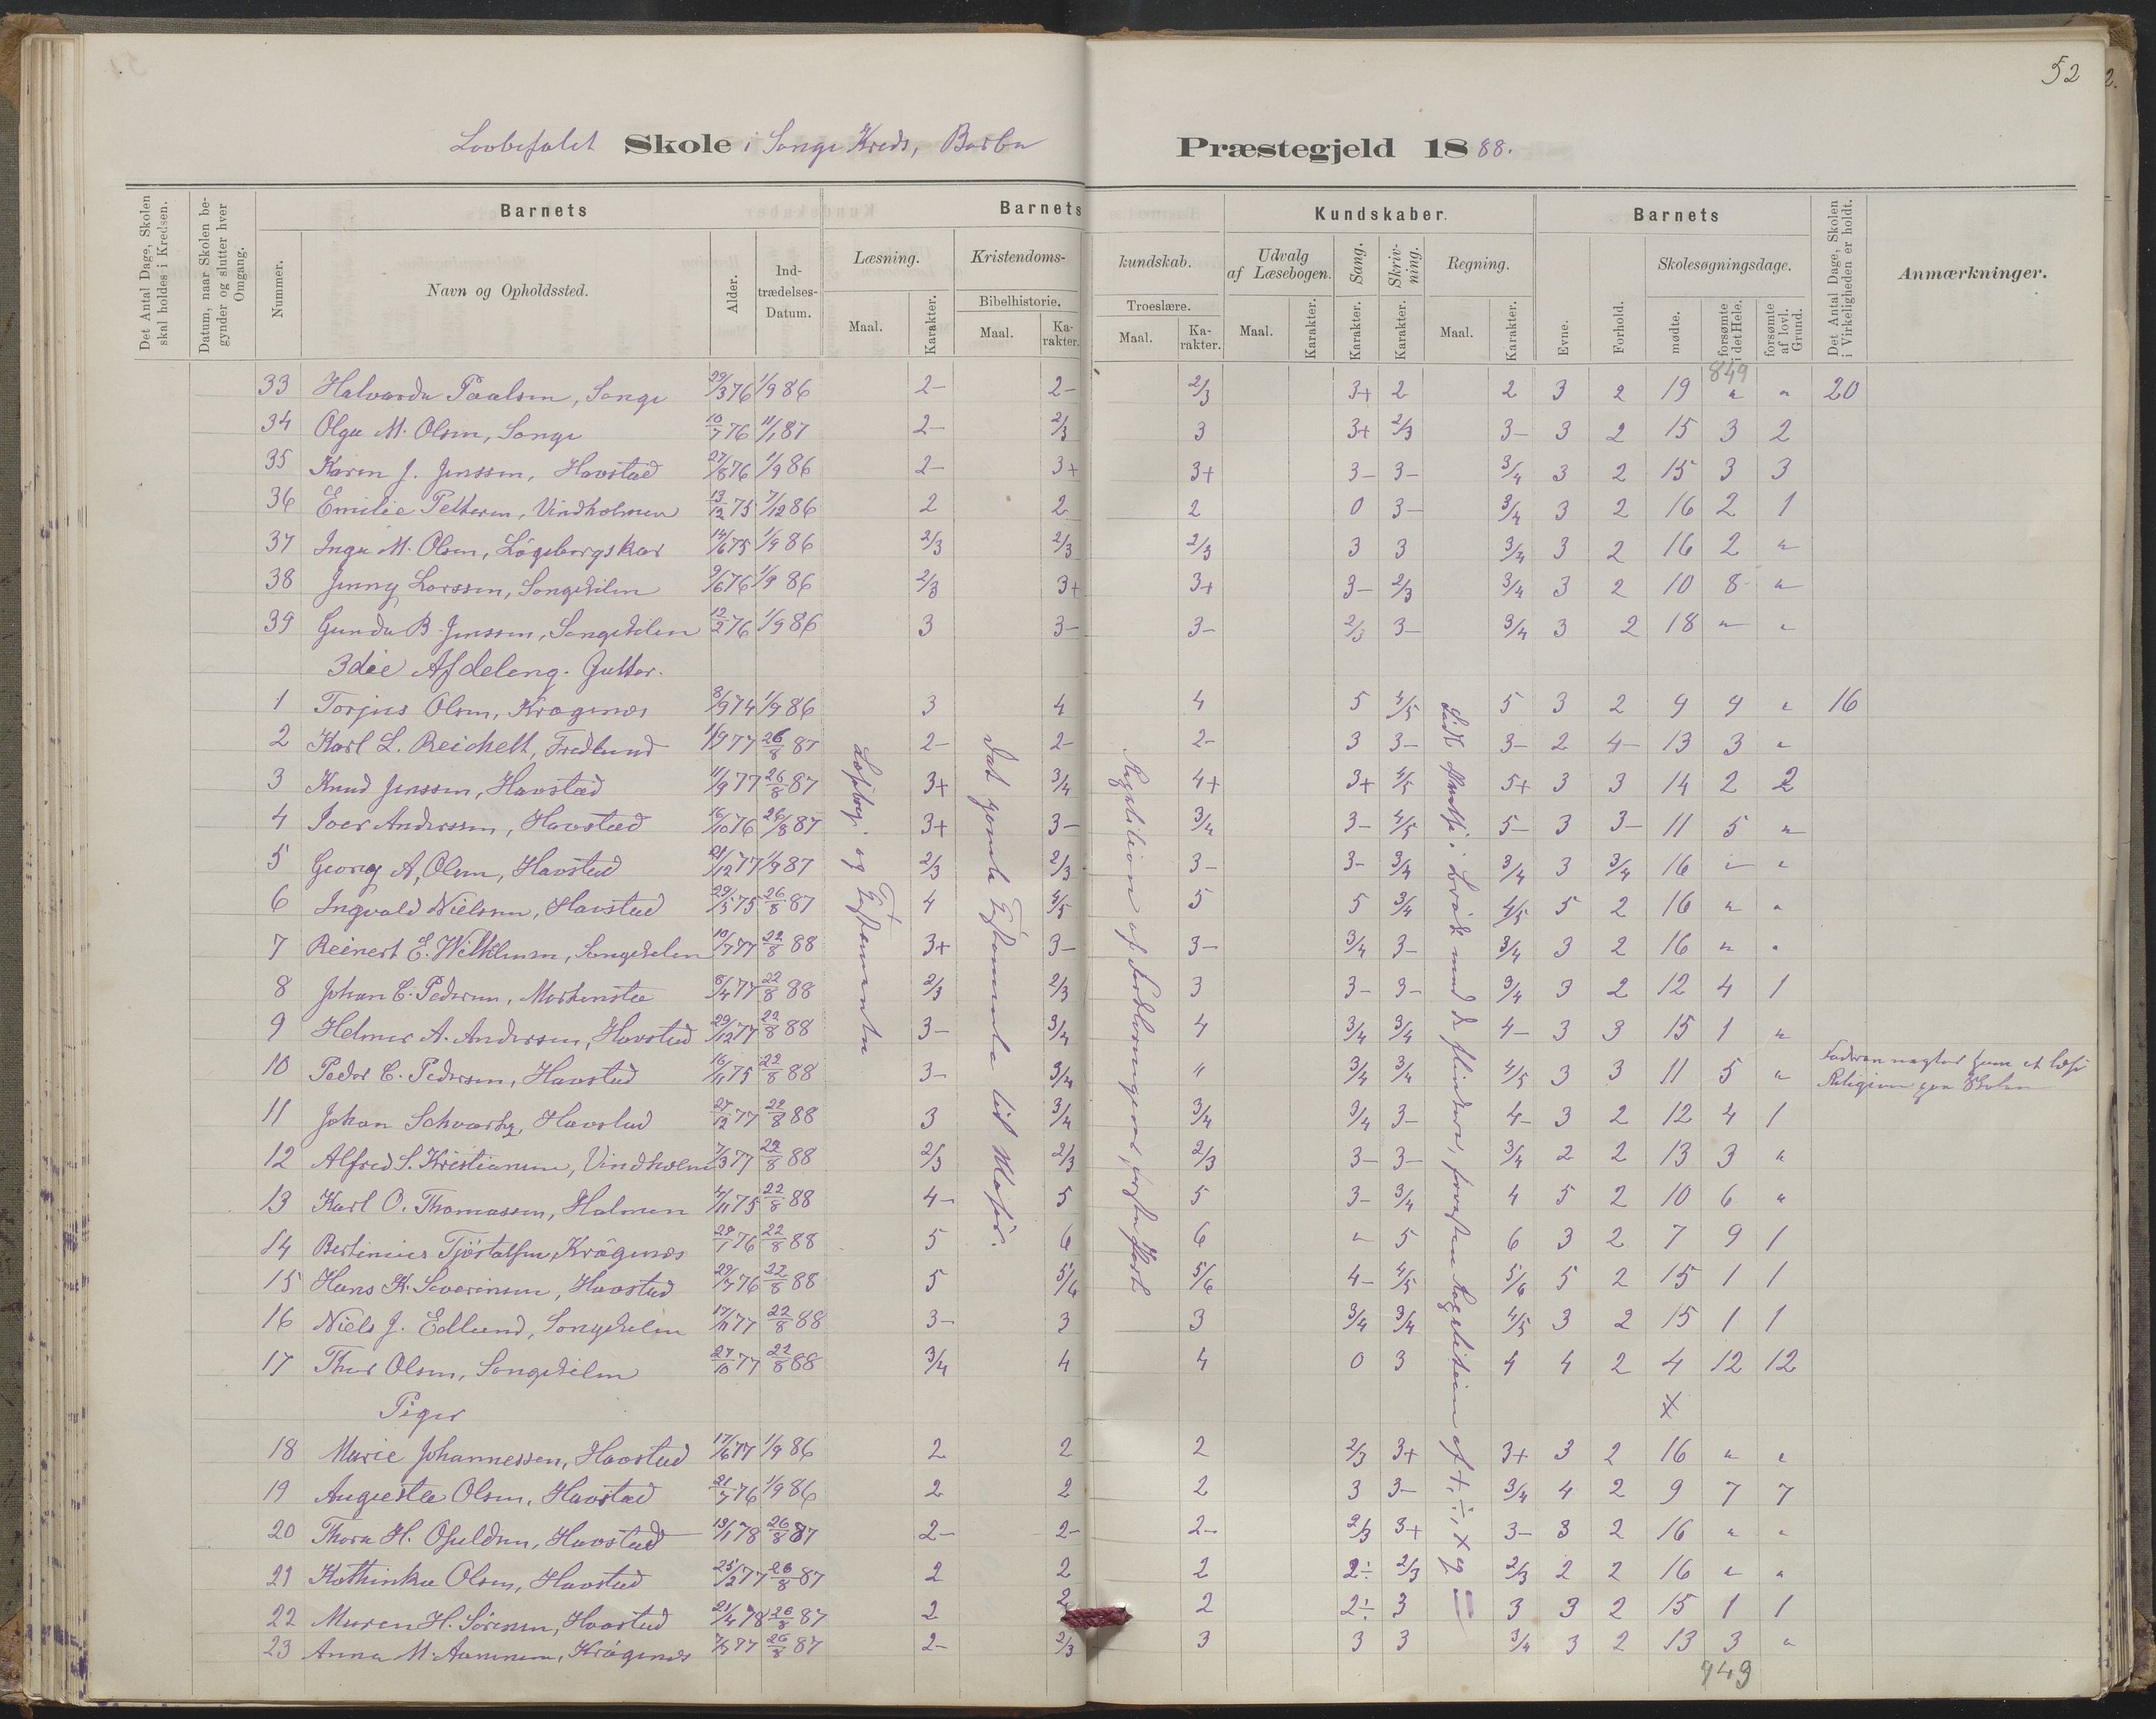 52
Lovbefalet Skole i Songe Kreds, Barbu Præstegjeld 1888.
Det Antal Dage, Skolen skal holdes i Kredsen.
Datum, naar Skolen begynder og slutter hver Omgang.
Barnets
Nummer.
Navn og Opholdssted.
Alder.
Indtrædelses-Datum.
Barnets Kundskaber.
Læsning.
Maal.
Karakter.
Kristendomskundskab.
Bibelhistorie.
Maal.
Karakter.
Troeslære.
Maal.
Karakter.
Udvalg af Læsebogen.
Maal.
Karakter.
Sang.
Karakter.
Skrivning.
Karakter.
Regning.
Maal.
Karakter.
Barnets
Evne.
Forhold.
Skolesøgningsdage.
mødte.
forsømte i det Hele.
forsømte af lovl. Grund.
Det Antal Dage, Skolen i Virkeligheden er holdt.
Anmærkninger.
849
33 Halvarda Paulsen, Songe 29/3 76 1/9 86 2- 2- 2/3 3+ 2 2 3 2 19 " " 20
34 Olga M. Olsen, Songe 10/7 76 11/1 87 2- 2/3 3 3+ 2/3 3- 3 2 15 3 2
35 Karen J. Jenssen, Havstad 27/8 76 1/9 86 2- 3+ 3+ 3- 3- 3/4 3 2 15 3 3
36 Emilie Pettersen, Vindholmen 13/12 75 7/12 86 2 2 2 0 3- 3/4 3 2 16 2 1
37 Inga M. Olsen, Løgeborgskar 14/6 75 1/9 86 2/3 2/3 2/3 3 3 3/4 3 2 16 2 "
38 Jenny Larssen, Songekilen 9/6 76 1/9 86 2/3 3+ 3+ 3- 2/3 3/4 3 2 10 8 "
39 Gunda B. Jenssen, Songekilen 12/2 76 1/9 86 3 3- 3- 2/3 3- 3/4 3 2 18 " "
3die Afdeling. Gutter.
1 Torjus Olsen, Krøgenes 8/9 74 1/9 86 3 4 4 5 4/5 5 3 2 9 9 " 16
2 Karl L. Reichelt, Fredlund 1/9 77 26/8 87 2- 2- 2- 3 3- 3- 2 4- 13 3 "
3 Knud Jenssen, Havstad 11/9 77 26/8 87 3+ 3/4 4+ 3+ 4/5 5+ 3 3 14 2 2
4 Iver Anderssen, Havstad 16/10 76 26/8 87 3+ 3- 3/4 3- 4/5 5- 3 3- 11 5 "
5 Georg A. Olsen, Havstad 21/12 77 1/9 87 2/3 2/3 3- 3- 3/4 3/4 3 3/4 16 " "
6 Ingvald Nielsen, Havstad 29/5 75 26/8 87 4 4/5 5 5 3/4 4/5 5 2 16 " "
7 Reinert E. Wilhelmsen, Songekilen 10/7 77 22/8 88 3+ 3- 3- 3/4 3- 3/4 3 2 16 " "
8 Johan C. Pedersen, Mortensta 8/4 77 22/8 88 2/3 2/3 3 3- 3- 3/4 3 2 12 4 1
9 Helmer A. Andersen, Havstad 29/12 77 22/8 88 3- 3/4 4 3/4 3/4 4- 3 3 15 1 "
10 Peder C. Pedersen, Havstad 16/11 75 22/8 88 3- 3/4 " 3/4 3/4 4/5 3 3 11 5 " Faderen nægter ham at læse
Religion paa Skolen
11 Johan Schwartz, Havstad 27/12 77 22/8 88 3 3/4 3/4 3/4 3- 4- 3 2 12 4 1
12 Alfred S. Kristiansen, Vindholm 7/3 77 22/8 88 2/3 2/3 2/3 3- 3- 3/4 2 2 13 3 "
13 Karl O. Thomassen, Holmen 4/11 75 22/8 88 4- 5 5 3- 3/4 4 5 2 10 6 "
14 Bertinius Tjöstalfsen, Krøgenes 29/1 76 22/8 88 5 6 6 " 5 6 3 2 7 9 1
15 Hans K. Severinsen, Havstad 29/7 76 22/8 88 5 5/6 5/6 4- 4/5 5/6 5 2 15 1 1
16 Niels J. Edlund, Songekilen 17/11 77 22/8 88 3- 3 3 3/4 3/4 4/5 3 2 15 1 1
17 Thor Olsen, Songekilen 27/10 77 22/8 88 3/4 4 4 0 3 4 4 2 4 12 12
Piger
18 Marie Johannessen, Havstad 17/6 77 1/9 86 2 2 2 2/3 3+ 3+ 3 2 16 " "
19 Augusta Olsen, Havstad 21/7 76 1/9 86 2 2 2 3 3- 3/4 4 2 9 7 7
20 Thora H. Osuldsen, Havstad 13/1 78 26/8 87 2- 2- 2- 2/3 3+ 3- 3 2 16 " "
21 Kathinka Olsen, Havstad 25/12 77 26/8 87 2 2 2 2÷ 2/3 2/3 2 2 16 " "
22 Maren H. Sörensen, Havstad 21/4 78 26/8 87 2 2 2 2÷ 3 3 3 2 15 1 1
23 Anna M. Aamnesen, Krögenes 7/7 77 26/8 87 2- 2/3 3 3 3 3/4 3 2 13 3 "
949
Læsebog og Testamente
Det gamle Testamente til Moses.
Repetition af Forklaringens første Part